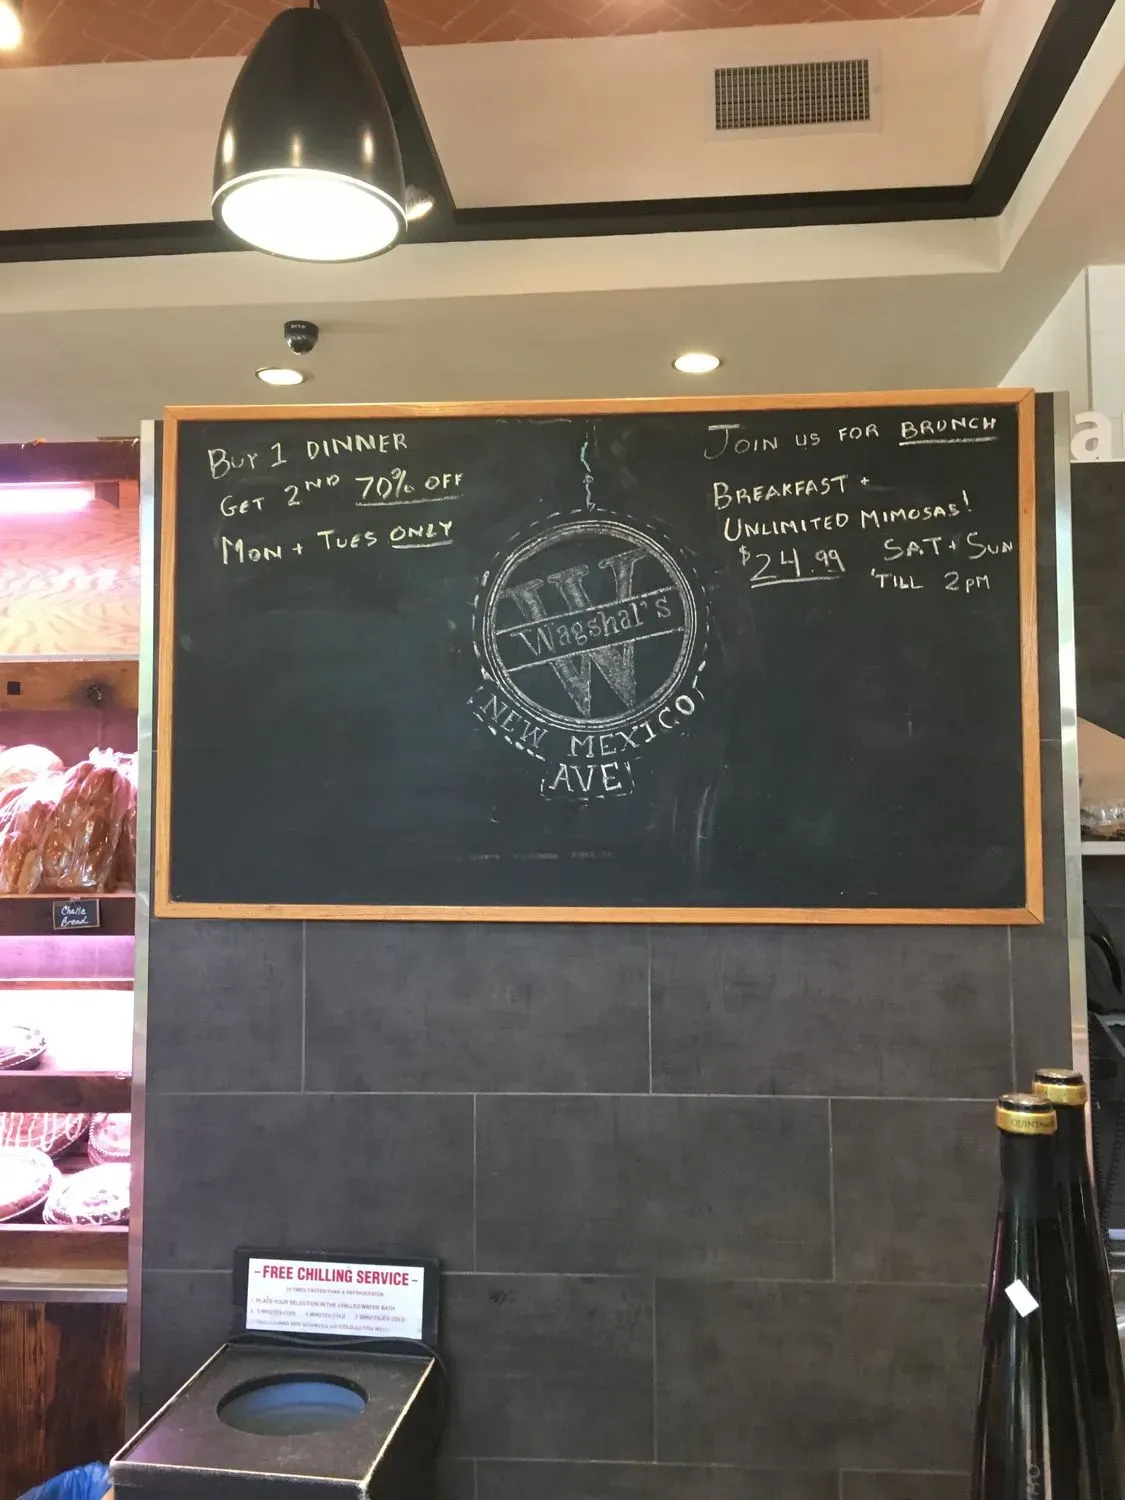 BUY 1 DINNER
GET 2ND 70% OFF
MON + TUES ONLY
W
Wagshal's
NEW MEXICO
AVE
JOIN US FOR BRUNCH
BREAKFAST +
UNLIMITED MIMOSAS!
$24.99
SAT + SUN
'TILL 2PM
a
Challa
Bread
- FREE CHILLING SERVICE -
PLACE YOUR SELECTION IN THE CHILLED WATER BATH